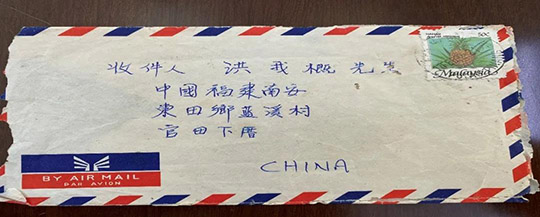 50¢
Malaysia
收件人 洪我概先生
中國福建南安
東田鄉蓝溪村
官田下厝
CHINA
BY AIR MAIL
PAR AVION